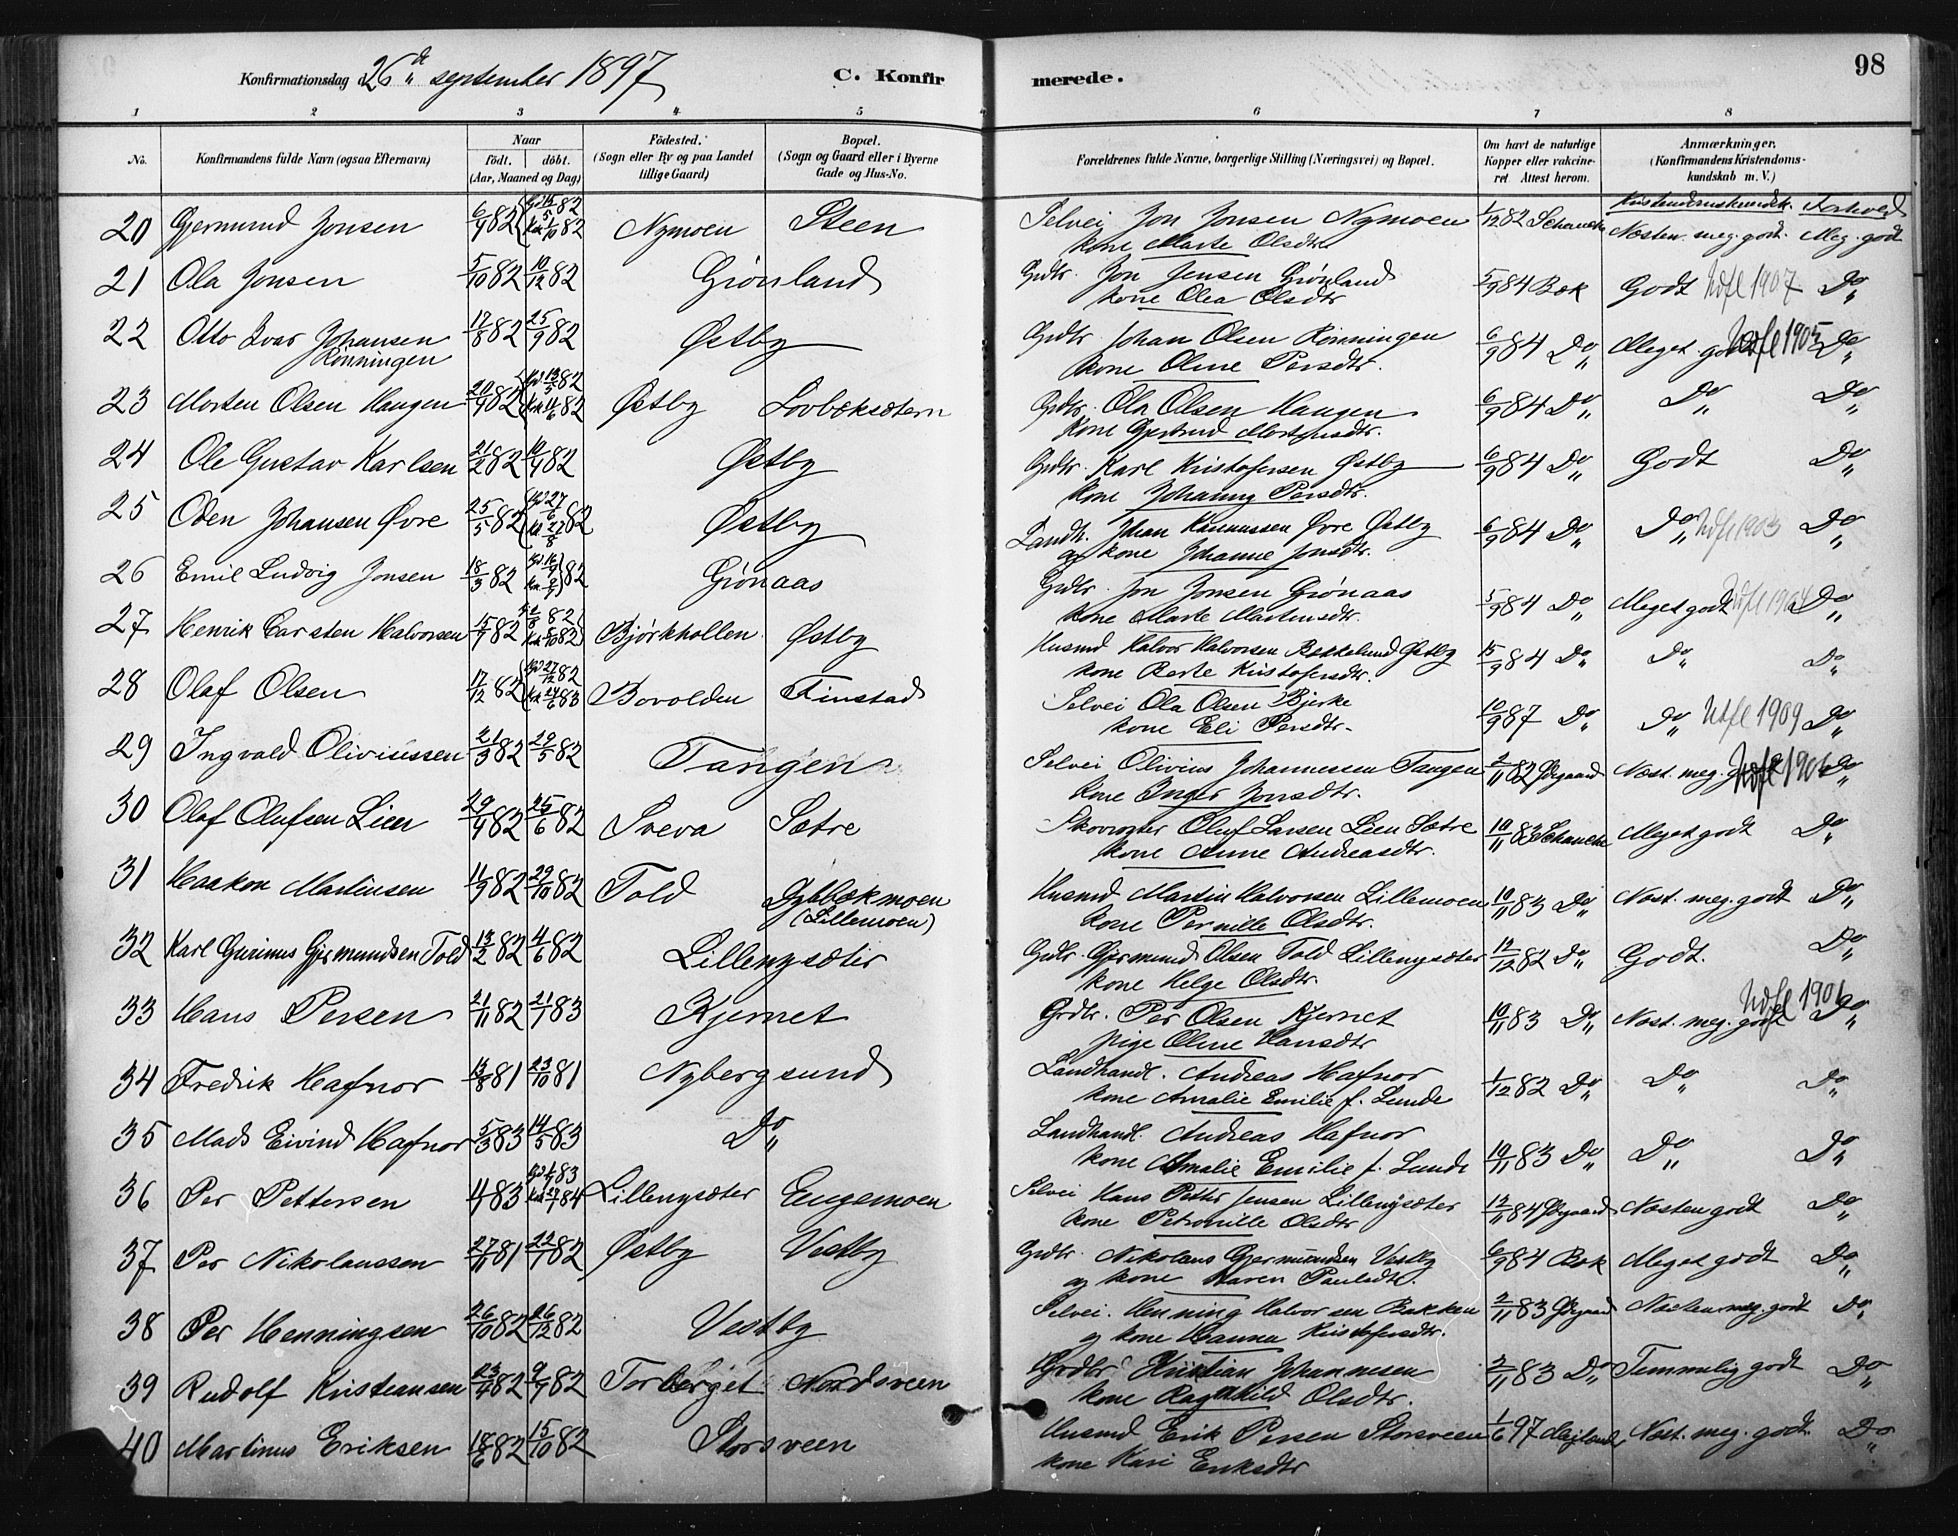 98
Konfirmationsdag d. 26de september 1897
C. Konfirmerede.
1 2 3 4 5 6 7 8
No. Konfirmandens fulde Navn (ogsaa Efternavn) Naar født. døbt. (Aar, Maaned og Dag) Födested. (Sogn eller By og paa Landet tillige Gaard) Bopæl. (Sogn og Gaard eller i Byerne Gade og Hus-No. Forældrenes fulde Navne, borgerlige Stilling (Næringsvei) og Bopæl. Om havt de naturlige Kopper eller vakcineret. Attest herom. Anmærkninger. (Konfirmandens Kristendomskundskab m. V.)
Kristendomskundsk. Forhold
20 Gjermund Jonsen 6/4 82 Nymoen Steen Selvei Jon Jonsen Nymoen 1/12 82 Schanche Næsten meg. godt. Meg. godt
kone Marte Olsdtr.
21 Ola Jonsen 5/10 82 10/12 82 Grönland Grdbr. Jon Jensen Grönland 5/9 84 Bæk Godt Udfl 1907 Do
kone Olea Olsdtr
22 Otto Ivar Johansen 17/8 82 25/9 82 Østby Grdbr. Johan Olsen Rönningen 6/9 84 Do Meget godt Udfl 1905 Do
Rönningen kone Oline Persdtr.
23 Morten Olsen Haugen Østby Lovbæksætern Grdbr. Ola Olsen Haugen 6/9 84 Do Do Do
kone Gjertrud Mortensdtr.
24 Ole Gustav Karlsen 21/2 82 10/4 82 Østby Grdbr. Karl Kristofersen Østby 6/9 84 Do Godt Do
kone Johanna Persdtr.
25 Oden Johansen Øvre 25/5 82 Østby Landh. Johan Rasmussen Øvre Østby 6/9 84 Do Do Udfl 1903 Do
og kone Johanne Jonsdtr.
26 Emil Ludvig Jonsen 18/3 82 Grönaas Grdbr. Jon Jonsen Grönaas 5/9 84 Do Meget godt Udfl 1904 Do
kone Marte Martinsdtr.
27 Henrik Carsten Halvorsen 15/7 82 Bjørkhollen Østby Husmd Halvor Halvorsen Bekkelund Østby 15/9 84 Do Do Do
kone Berte Kristofersdtr.
28 Olaf Olsen 17/12 82 Bovolden Finstad Selvei Ola Olsen Bjerke 10/9 87 Do Do Udfl 1909 Do
kone Eli Persdtr.
29 Ingvald Oliviussen 21/3 82 29/5 82 Tangen Selvei Olivius Johannessen Tangen 2/11 82 Ødegaard Næst. meg. godt Udfl 1906 Do
kone Inger Jonsdtr.
30 Olaf Olufsen Lien 29/4 82 25/6 82 Sveva Sætre Skovvogter Oluf Larsen Lien Sætre 10/11 83 Schanche Meget godt Do
kone Anne Andreasdtr.
31 Haakon Martinsen 11/9 82 29/10 82 Told Dybbækmoen Husmd Martin Halvorsen Lillemoen 10/11 83 Do Næst. meg. godt Do
(Lillemoen) kone Pernille Olsdtr.
32 Karl Gurinus Gjermundsen Told 13/2 82 4/6 82 Lillenysæter Grdbr. Gjermund Olsen Told Lillenysæter 12/12 82 Do Godt. Do
kone Helge Olsdtr.
33 Hans Persen 21/11 82 21/1 83 Kjernet Grdbr. Per Olsen Kjernet 10/11 83 Do Næst. meg. godt Udfl 1901 Do
pige Oline Hansdtr
34 Fredrik Hafnor 13/8 81 23/10 81 Nybergsund Landhandl. Andreas Hafnor 1/12 82 Do Do Do
kone Amalie Emilie f. Lunde
35 Mads Eivind Hafnor 5/3 83 14/5 83 Do Landhandl. Andreas Hafnor 10/11 83 Do Do Do
kone Amalie Emilie f. Lunde
36 Per Pettersen Lillenysæter Engemoen Selvei Hans Petter Jensen Lillenysæter 12/11 84 Ødegaard Næsten godt Do
kone Petronille Olsdtr
37 Per Nikolaussen 27/11 81 22/1 82 Østby Vestby Grdbr. Nikolaus Gjermundsen Vestby 6/9 84 Bæk Meget godt Do
og kone Karen Paulsdtr.
38 Per Henningsen 26/10 82 26/12 82 Vestby Selvei. Henning Halvorsen Bakken 2/11 83 Ødegaard Næsten meg. godt Do
og kone Hanna Kristofersdtr.
39 Rudolf Kristiansen 23/4 82 9/7 82 Torberget Nordsveen Grdbr Kristian Johannesen 2/11 83 Do Temmelig godt Do
kone Ragnhild Olsdtr.
40 Martinus Eriksen 18/6 82 15/10 82 Storsveen Husmd Erik Persen Storsveen 1/6 97 Næst. meg. godt Do
kone Kari Eriksdtr